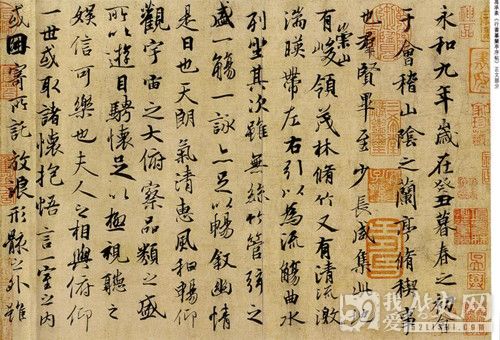 承素《行书摹兰亭序帖》正文部分
永和九年歲在癸丑暮春之初會
于會稽山陰之蘭亭脩禊事
也群賢畢至少長咸集此地
有崇山峻領茂林脩竹又有清流激
湍暎帶左右引以為流觴曲水
列坐其次雖無絲竹管弦之
盛一觴一詠亦足以暢敘幽情
是日也天朗氣清惠風和暢仰
觀宇宙之大俯察品類之盛
所以遊目騁懷足以極視聽之
娛信可樂也夫人之相與俯仰
一世或取諸懷抱悟言一室之內
或因寄所託放浪形骸之外雖